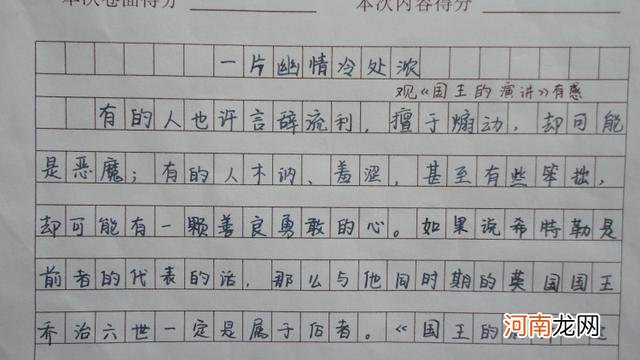 本次卷面得分 本次内容得分
一片幽情冷处浓
观《国王的演讲》有感
有的人也许言辞流利，擅于煽动，却可能
是恶魔；有的人木讷、羞涩，甚至有些笨拙，
却可能有一颗善良勇敢的心。如果说希特勒是
前者的代表的话，那么与他同时期的英国国王
乔治六世一定是属于后者。《国王的
河南龙网